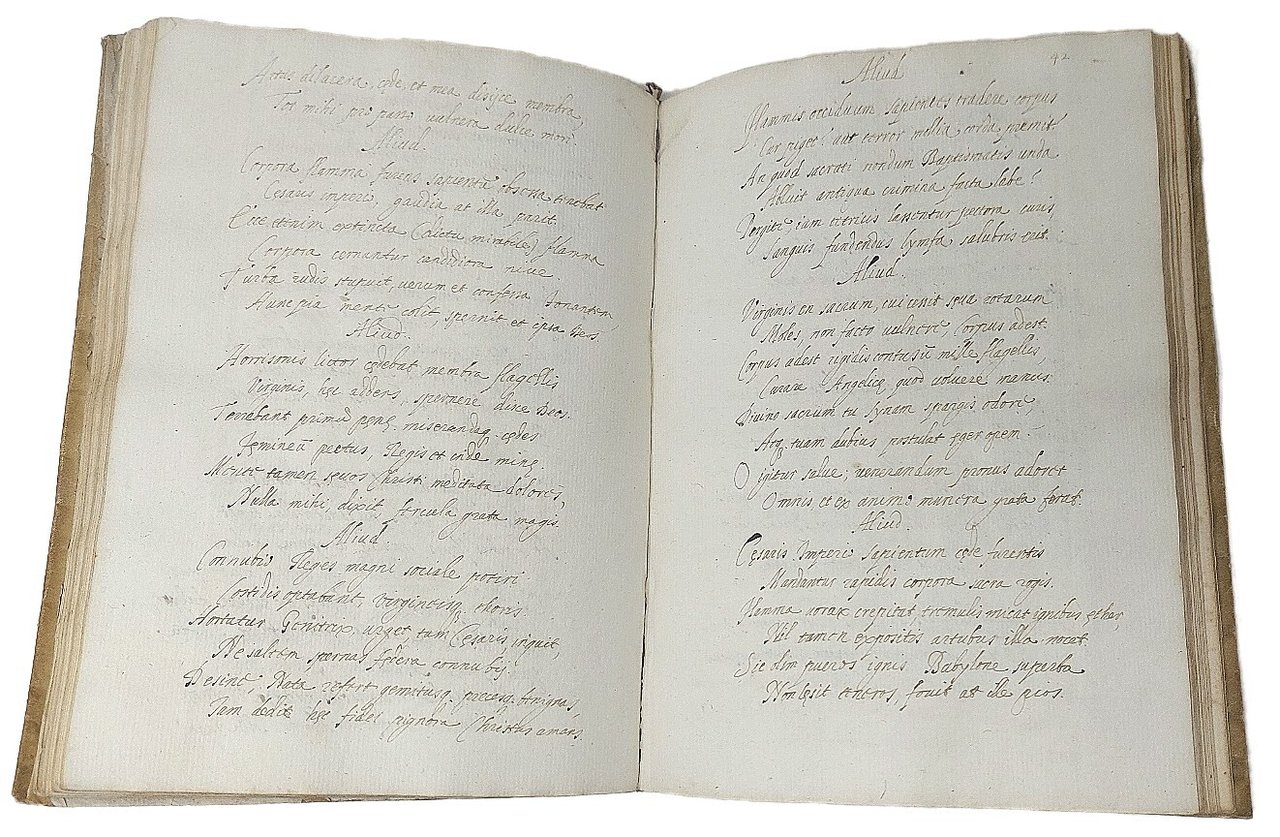 Artus dilacera, cęde, et mea disijce membra,
Tot mihi pro parto vulnera dulce mori.
Aliud.
Corpora flamma furens sapientū obscura trucbat
Cesaris imperio, gaudia at illa parit.
Ecce etenim extincta (dictu mirabile) flamma
Corpora cernuntur candidiora nive
Turba rudis stupuit, verum et confessa Tonantem,
Hunc pia mente colit, spernit et ipsa Deos.
Aliud.
Horrisonis lictor cędebat membra flagellis
Virginis, hęc addens, spernere disce Deos.
Terrebant primū pęnę, miserandaq. cędes
Fęmineū pectus, Regis et indę minę.
Mente tamen sęuos Christi meditata dolores,
Nulla mihi, dixit, fercula grata magis.
Aliud
Connubio Reges magni sociale potiri
Costidis optabant, virgineisq. thoris
Hortatur Genitrix, urget, tum Cęsaris, inquit,
Ne saltem spernas fędera connubij.
Desine, Nata refert gemitusq. precesq. benignas,
Iam dedit hęc fidei pignora Christus amans.
42
Aliud
Flammis occiduum sapientes tradere corpus
Cur piget? aut terror mollia corda premit?
An quod sacrati nondum Baptismatis unda
Abluit antiqua crimina facta labe?
Pergite, iam tetricis laxentur pectora curis,
Sanguis fundendus lympha salubris erit.
Aliud.
Virginis en sacrum, cui cenit sęua rotarum
Moles, non facto vulnere, Corpus adest.
Corpus adest rigidis contusū mille flagellis,
Curare Angelicę, quod voluere manus.
Divine sacrum tu Synam spargis odore,
Atq. tuam dubius postulat ęger opem.
O igitur salue, venerandum pronus adoret
Omnis, et ex animo munera grata ferat.
Aliud.
Cęsaris Imperio sapientum cęde furentis
Mandantur rapidis corpora sacra rogis.
Flamma uorax crepitat, tremulis micat ignibus ęther,
Nil tamen expositis artubus illa nocet.
Sic olim pueros ignis Babylone superba
Non lęsit teneros, fouit at ille pios.